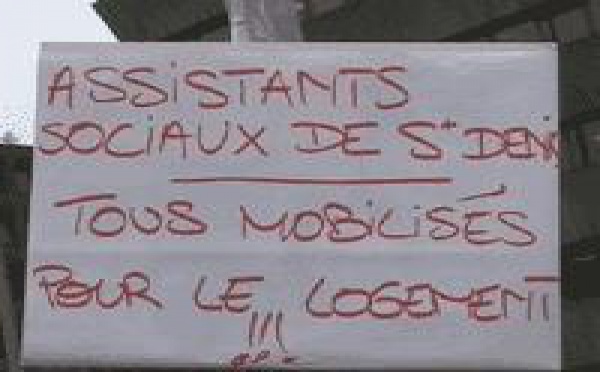 ASSISTANTS
SOCIAUX DE St DENIS
TOUS MOBILISÉS
POUR LE LOGEMENT
!!!